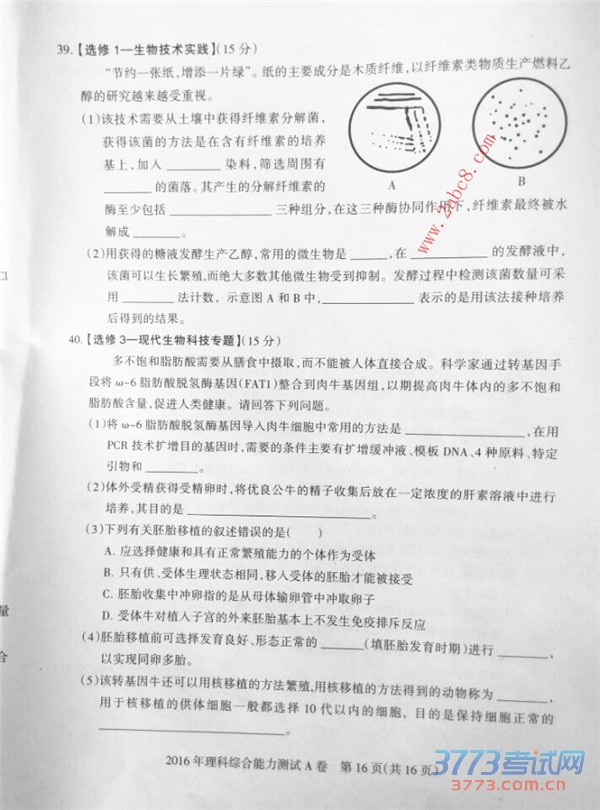 39.【选修1—生物技术实践】(15分)
“节约一张纸,增添一片绿”。纸的主要成分是木质纤维,以纤维素类物质生产燃料乙
醇的研究越来越受重视。
(1)该技术需要从土壤中获得纤维素分解菌,
获得该菌的方法是在含有纤维素的培养
基上,加入________染料,筛选周围有
________的菌落。其产生的分解纤维素的
酶至少包括________三种组分,在这三种酶协同作用下,纤维素最终被水
解成________。
A
B
(2)用获得的糖液发酵生产乙醇,常用的微生物是______,在________的发酵液中,
该菌可以生长繁殖,而绝大多数其他微生物受到抑制。发酵过程中检测该菌数量可采
用________法计数, 示意图A和B中,________表示的是用该法接种培养
后得到的结果。
40.【选修3—现代生物科技专题】(15分)
多不饱和脂肪酸需要从膳食中摄取,而不能被人体直接合成。科学家通过转基因手
段将ω-6脂肪酸脱氢酶基因(FAT1)整合到肉牛基因组,以期提高肉牛体内的多不饱和
脂肪酸含量,促进人类健康。请回答下列问题。
(1)将ω-6脂肪酸脱氢酶基因导入肉牛细胞中常用的方法是________,在用
PCR技术扩增目的基因时,需要的条件主要有扩增缓冲液、模板DNA、4种原料、特定
引物和________。
(2)体外受精获得受精卵时,将优良公牛的精子收集后放在一定浓度的肝素溶液中进行
培养,其目的是________。
(3)下列有关胚胎移植的叙述错误的是(　　)
A. 应选择健康和具有正常繁殖能力的个体作为受体
B. 只有供、受体生理状态相同,移入受体的胚胎才能被接受
C. 胚胎收集中冲卵指的是从母体输卵管中冲取卵子
D. 受体牛对植入子宫的外来胚胎基本上不发生免疫排斥反应
(4)胚胎移植前可选择发育良好、形态正常的______(填胚胎发育时期)进行________,
以实现同卵多胎。
(5)该转基因牛还可以用核移植的方法繁殖,用核移植的方法得到的动物称为________,
用于核移植的供体细胞一般都选择10代以内的细胞, 目的是保持细胞正常的
________。
2016年理科综合能力测试A卷 第16页(共16页)
3773考试网
3773.com.cn